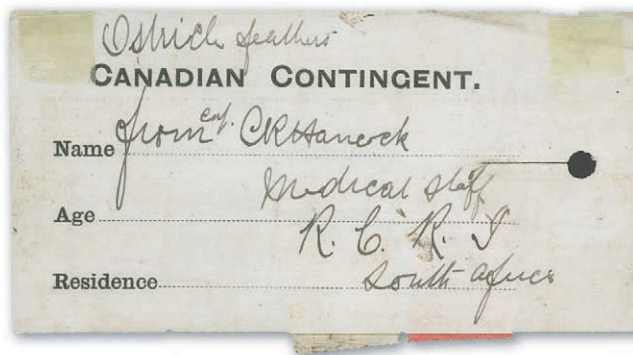 Ostrich feathers
CANADIAN CONTINGENT.
Name from Cap. CR Hancock
medical staff
Age
R. C. R. I
Residence South Africa